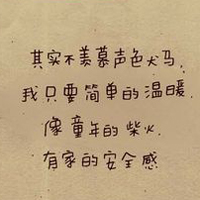 其实不羡慕声色犬马,
我只要简单的温暖.
像童年的柴火.
有家的安全感